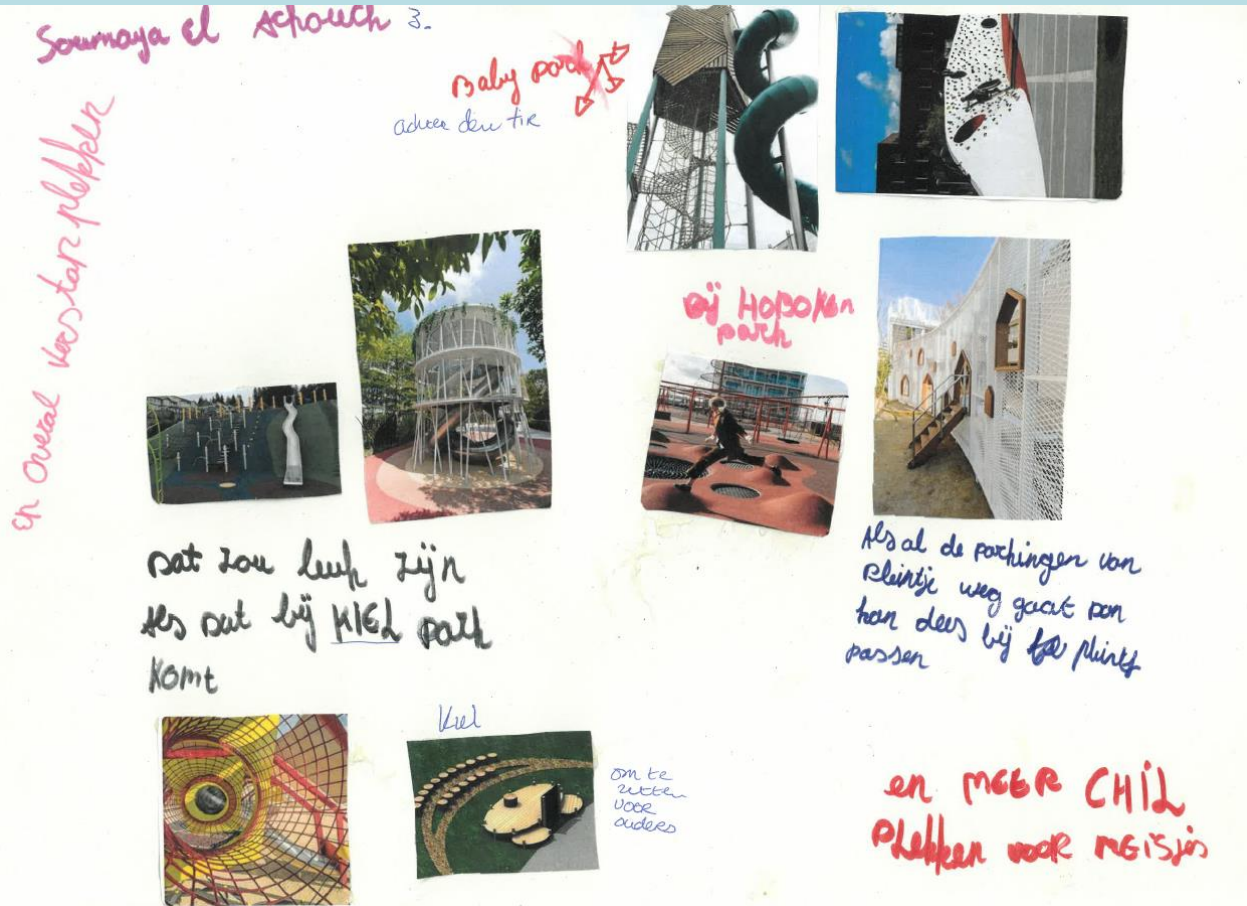 Soumaya El Achouch 3.
Baby park
achter den tir
en Overal voetstap plekken
bij HOBOKEN
park
Dat zou leuk zijn
Als dat bij KIEL park
komt
Als al de parkingen van
Pleintje weg gaat dan
kan dees bij pleintje
passen
Kiel
om te
zitten
voor
ouders
en MEER CHIL
plekken voor MEISJES